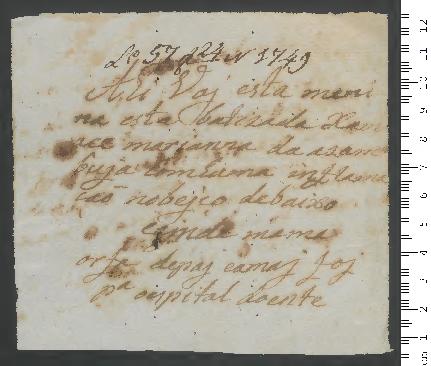 Lº 57 f 124 N 1749
Ali Vaj esta meni
na esta batizada xa
ne marianna da asam
buja comsama inflama
caõ nobejco debaixo
emde mama
orfa depaj eamaj foj
pª ospital doente